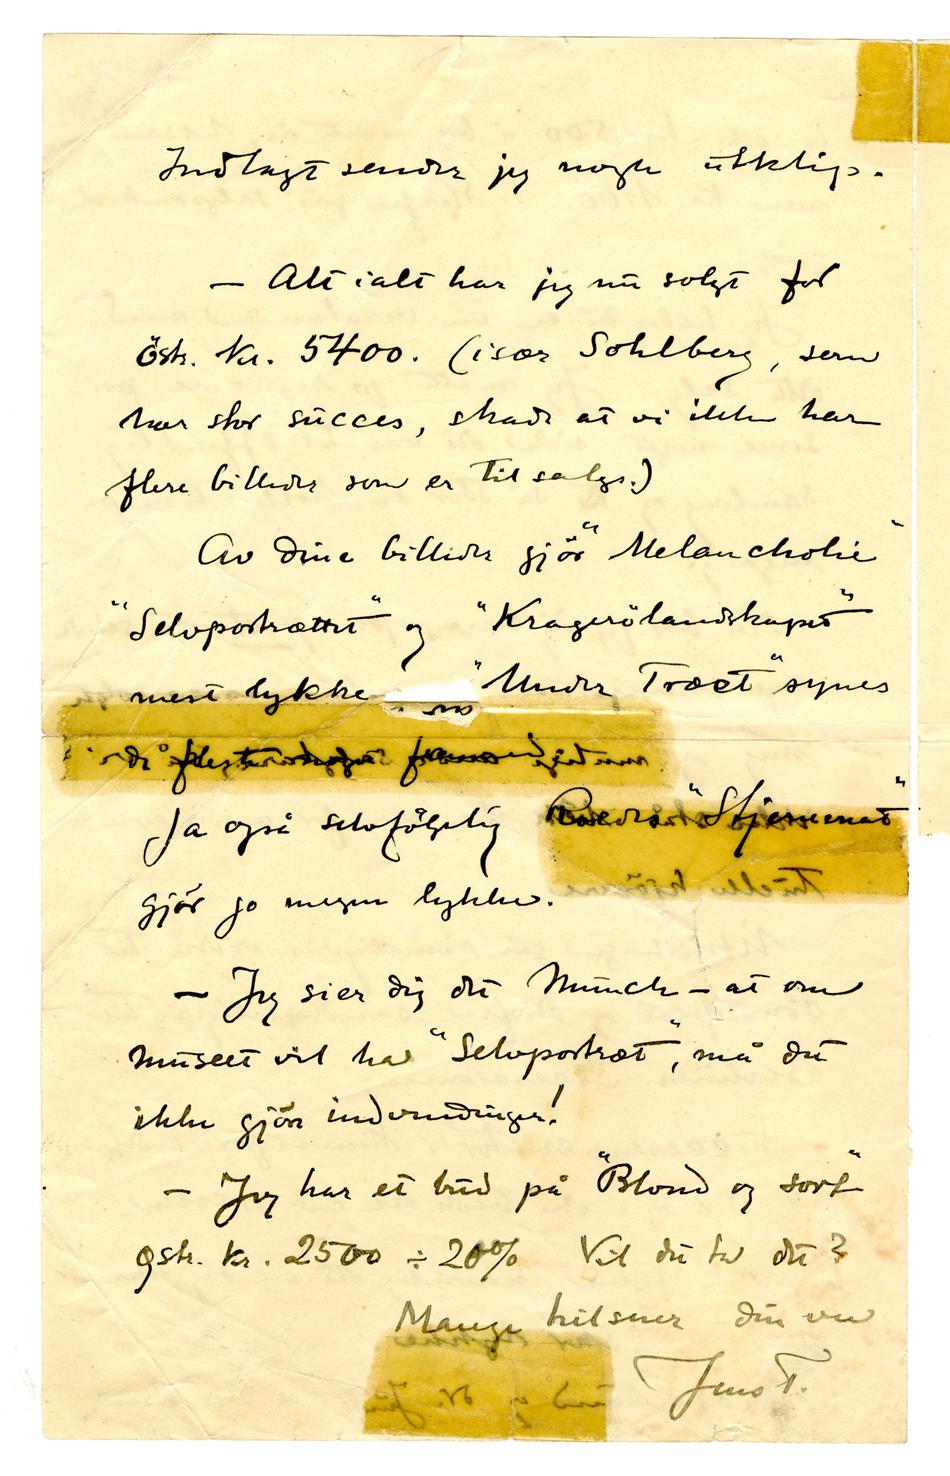 Indlagt sender jeg nogle utklip.
— Alt ialt har jeg nu solgt for
östr. Kr. 5400. (især Sohlberg, som
har stor succes, skade at vi ikke har
flere billeder som er til salgs.)
Av dine billeder gjör "Melancholie"
"Selvportrættet" og "Kragerölandskapet"
mest lykke "Under Træet" synes
de fleste
Ja også selvfölgelig "Stjernenat"
gjör jo megen lykke.
— Jeg sier dig det Munch — at om
museet vil ha "Selvportræt", må du
ikke gjöre indvendinger!
— Jeg har et bud på "Blond og sort"
östr. Kr. 2500 ÷ 20% Vil du ta det?
Mange hilsner din ven
Jens T.